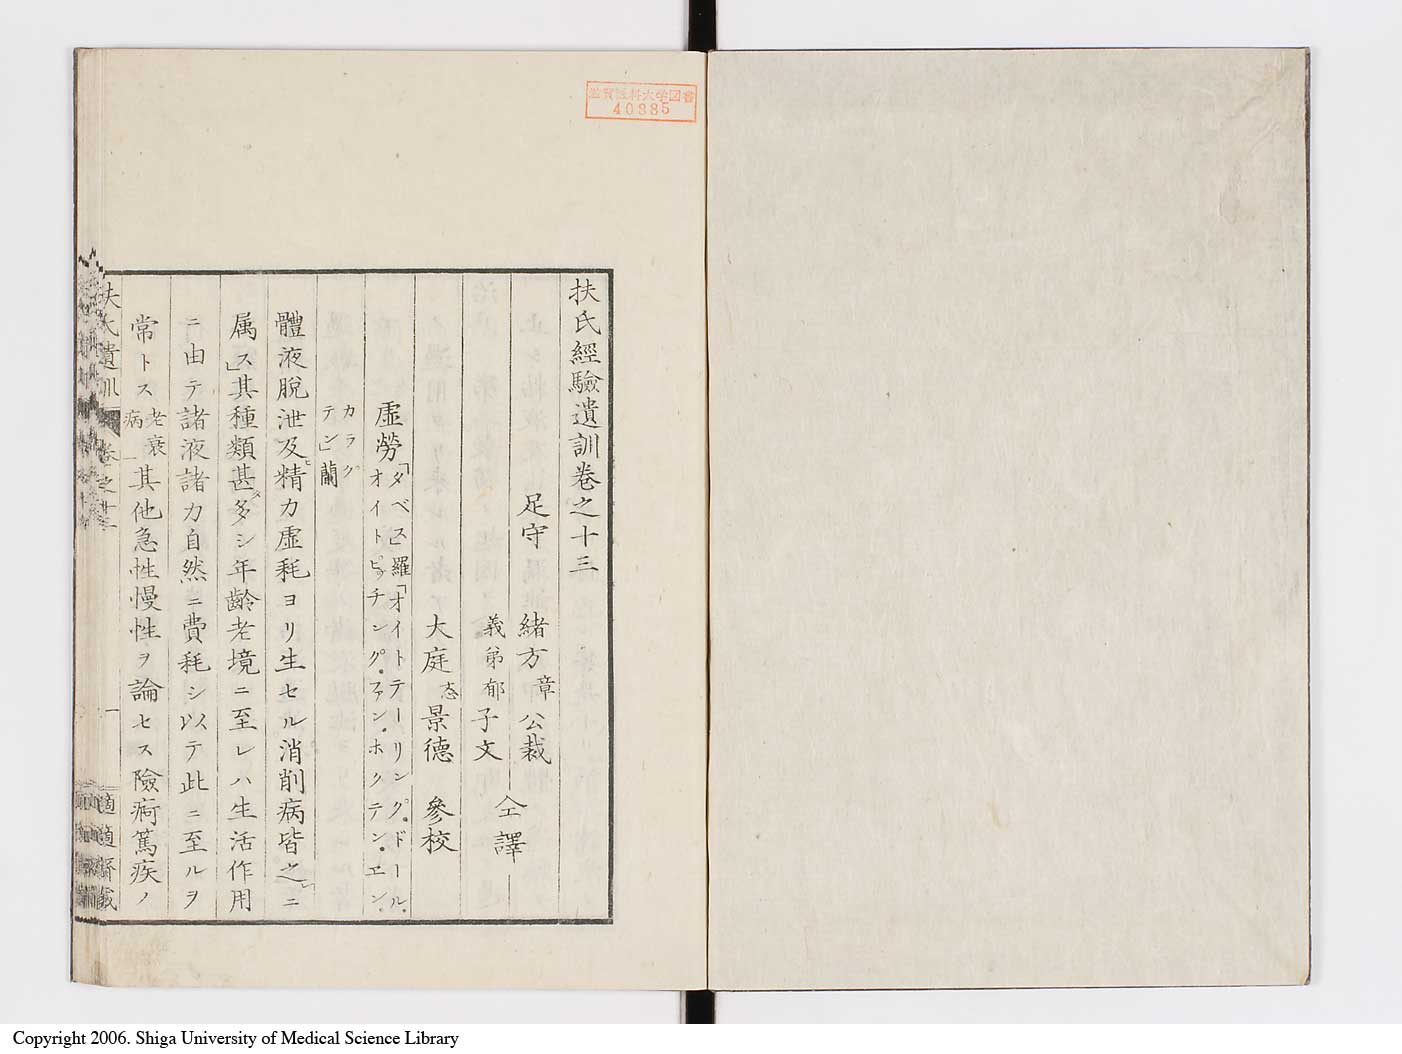 滋賀医科大学図書
40885
扶氏經驗遺訓卷之十三
足守 緒方章公裁
義弟郁子文 仝譯
大庭忞景德 參校
虛勞「タベス羅「オイトテーリング・ドール・
オイトピッチング・ファン・ホクテン・エン・
カラク
テン」蘭
體液脫泄及ヒ精力虛耗ヨリ生セル消削病皆之レニ
属ス」其種類甚タ多シ年齡老境ニ至レハ生活作用
ニ由テ諸液諸力自然ニ費耗シ以テ此ニ至ルヲ
常トス老衰病其他急性慢性ヲ論セス險痾篤疾ノ
扶氏遺訓 卷之十三 一 適適齋藏
Copyright 2006. Shiga University of Medical Science Library